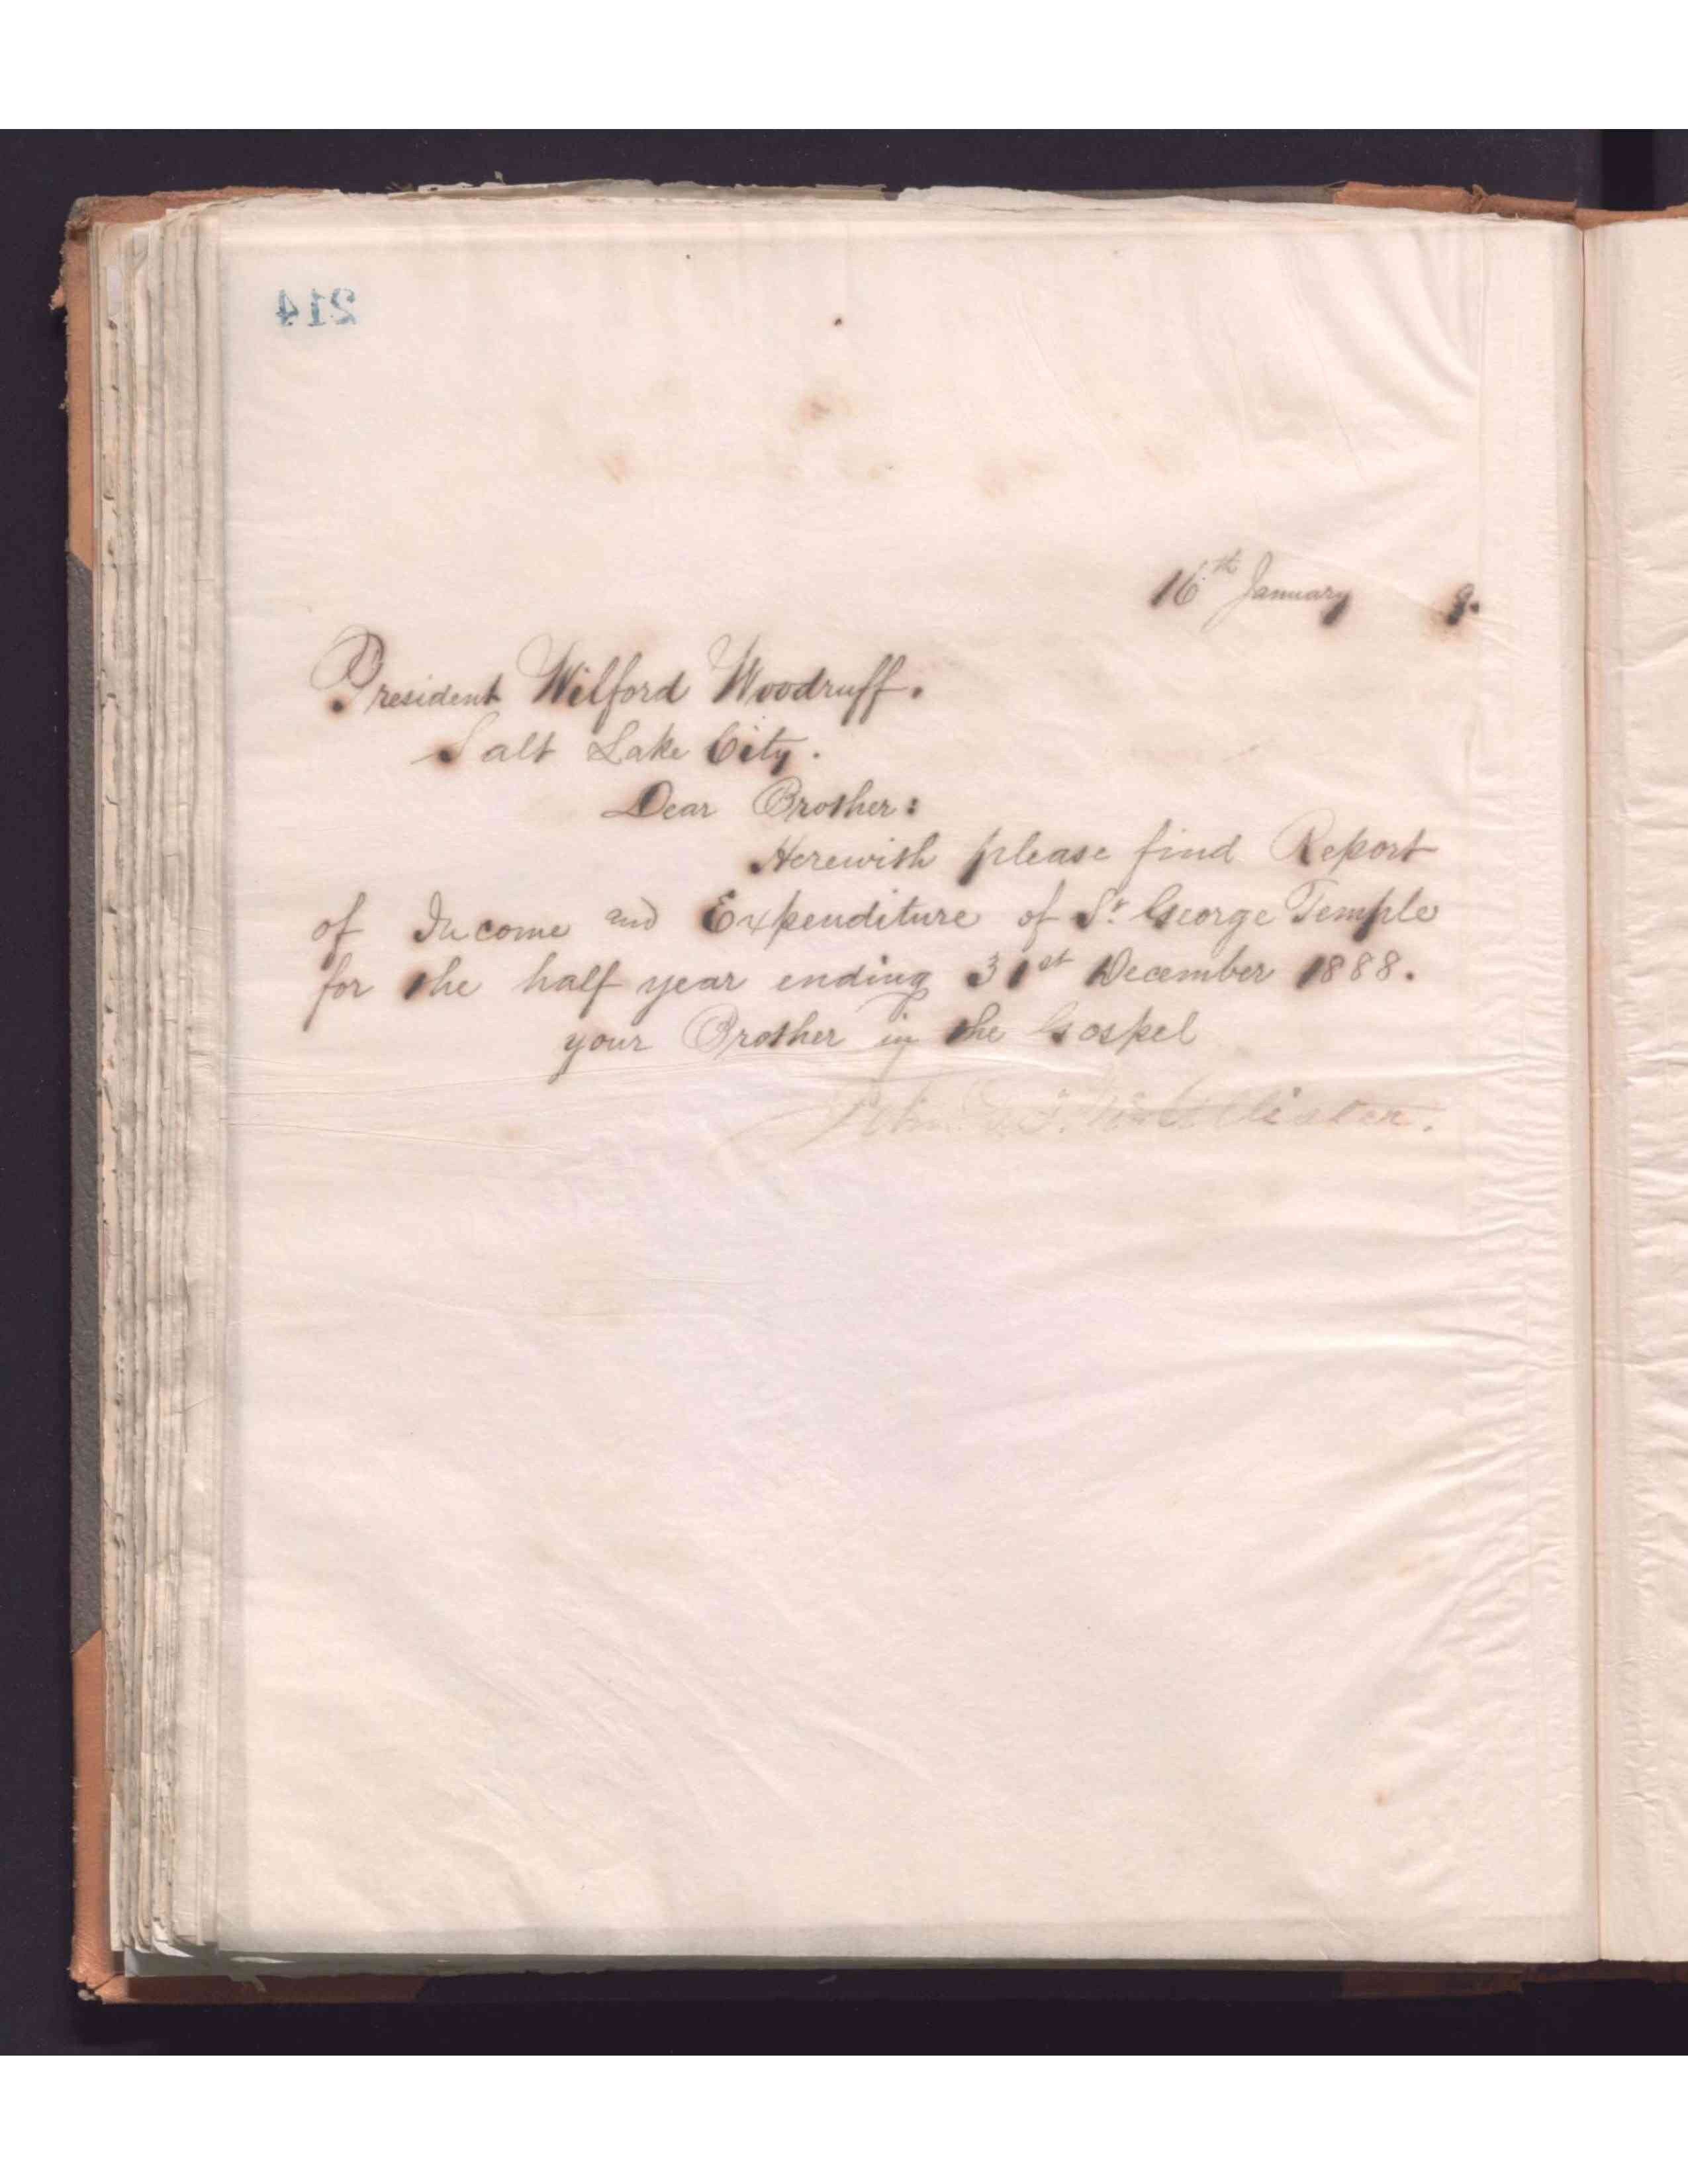 214
16th January 9.
President Wilford Woodruff.
Salt Lake City.
Dear Brother:
Herewith please find Report
of Income and Expenditure of St. George Temple
for the half year ending 31st December 1888.
your Brother in the Gospel
John D. T. McAllister.